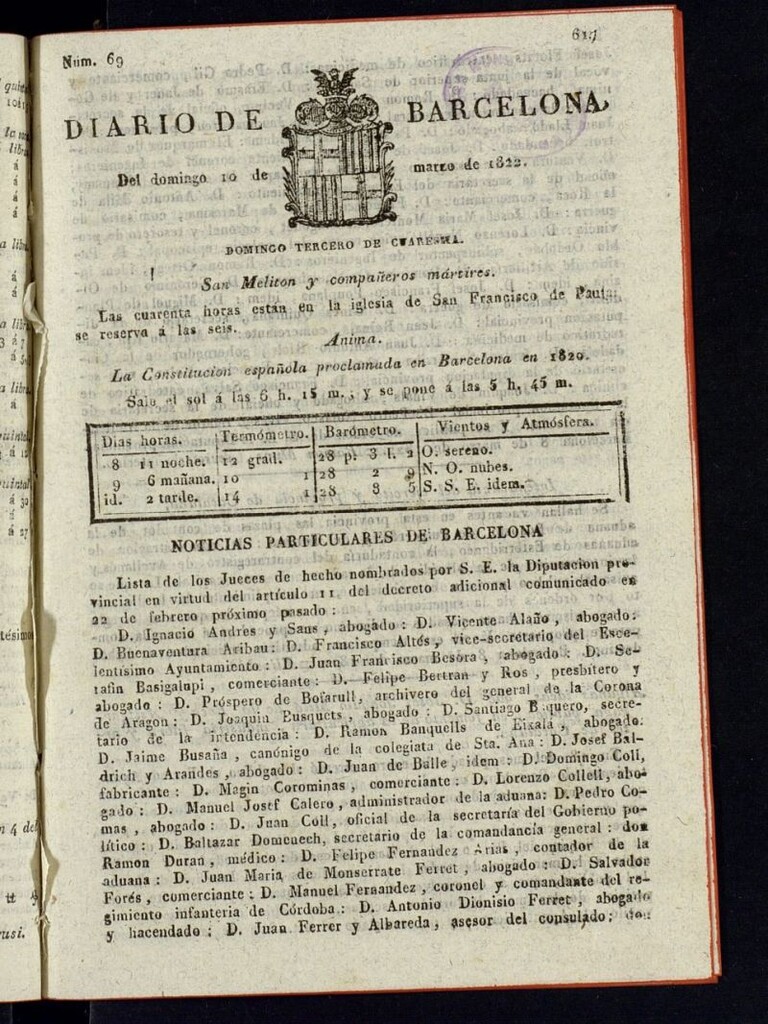 Núm. 69
617
DIARIO DE BARCELONA,
Del domingo 10 de marzo de 1822.
DOMINGO TERCERO DE CUARESMA.
San Meliton y compañeros mártires.
Las cuarenta horas están en la iglesia de San Francisco de Paula;
se reserva á las seis.
Anima.
La Constitucion española proclamada en Barcelona en 1820.
Sale el sol á las 6 h. 15 m.; y se pone á las 5 h. 45 m.
Dias horas. Termómetro. Barómetro. Vientos y Atmósfera.
8 11 noche. 12 grad. 28 p. 3 l. 2 O. sereno.
9 6 mañana. 10 1 28 2 9 N. O. nubes.
id. 2 tarde. 14 1 28 3 5 S. S. E. idem.
NOTICIAS PARTICULARES DE BARCELONA
Lista de los Jueces de hecho nombrados por S. E. la Diputacion pro-
vincial en virtud del artículo 11 del decreto adicional comunicado en
22 de febrero próximo pasado:
D. Ignacio Andres y Sans, abogado: D. Vicente Alaño, abogado:
D. Buenaventura Aribau: D. Francisco Altés, vice-secretario del Esce-
lentísimo Ayuntamiento: D. Juan Francisco Besora, abogado: D. Se-
rafin Basigalupi, comerciante: D. Felipe Bertran y Ros, presbítero y
abogado: D. Próspero de Bofarull, archivero del general de la Corona
de Aragon: D. Joaquin Eusquets, abogado: D. Santiago Baquero, secre-
tario de la intendencia: D. Ramon Banquells de Eixalá, abogado:
D. Jaime Busaña, canónigo de la colegiata de Sta. Ana: D. Josef Bal-
drich y Arandes, abogado: D. Juan de Balle, idem: D. Domingo Coll,
fabricante: D. Magin Corominas, comerciante: D. Lorenzo Collell, abo-
gado: D. Manuel Josef Calero, administrador de la aduana: D. Pedro Co-
mas, abogado: D. Juan Coll, oficial de la secretaría del Gobierno po-
lítico: D. Baltazar Domenech, secretario de la comandancia general: don
Ramon Duran, médico: D. Felipe Fernandez Arias, contador de la
aduana: D. Juan Maria de Monserrate Ferret, abogado: D. Salvador
Forés, comerciante: D. Manuel Fernandez, coronel y comandante del re-
gimiento infanteria de Córdoba: D. Antonio Dionisio Ferret, abogado
y hacendado: D. Juan Ferrer y Albareda, asesor del consulado; don